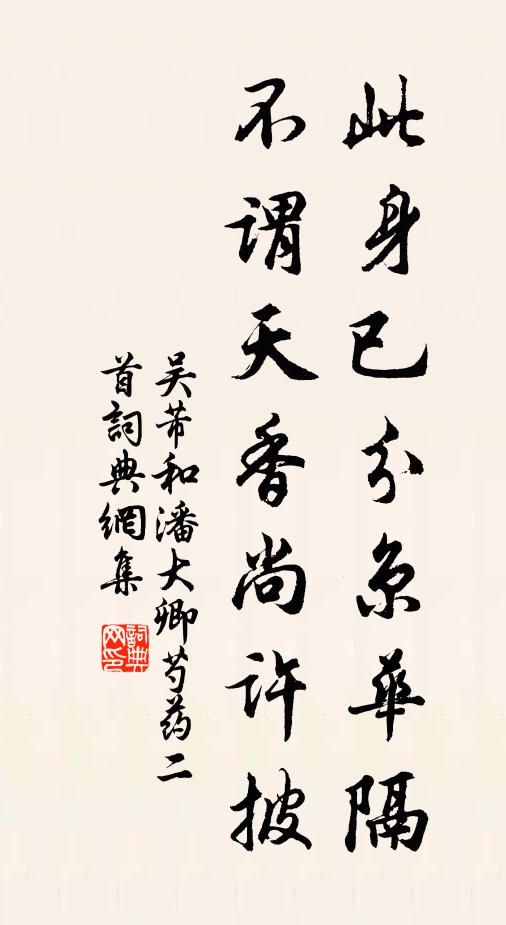 此身已分京華隔
不謂天香尚許披
吴芾和潘大卿芍药二
首詞典網集
詞典
网印